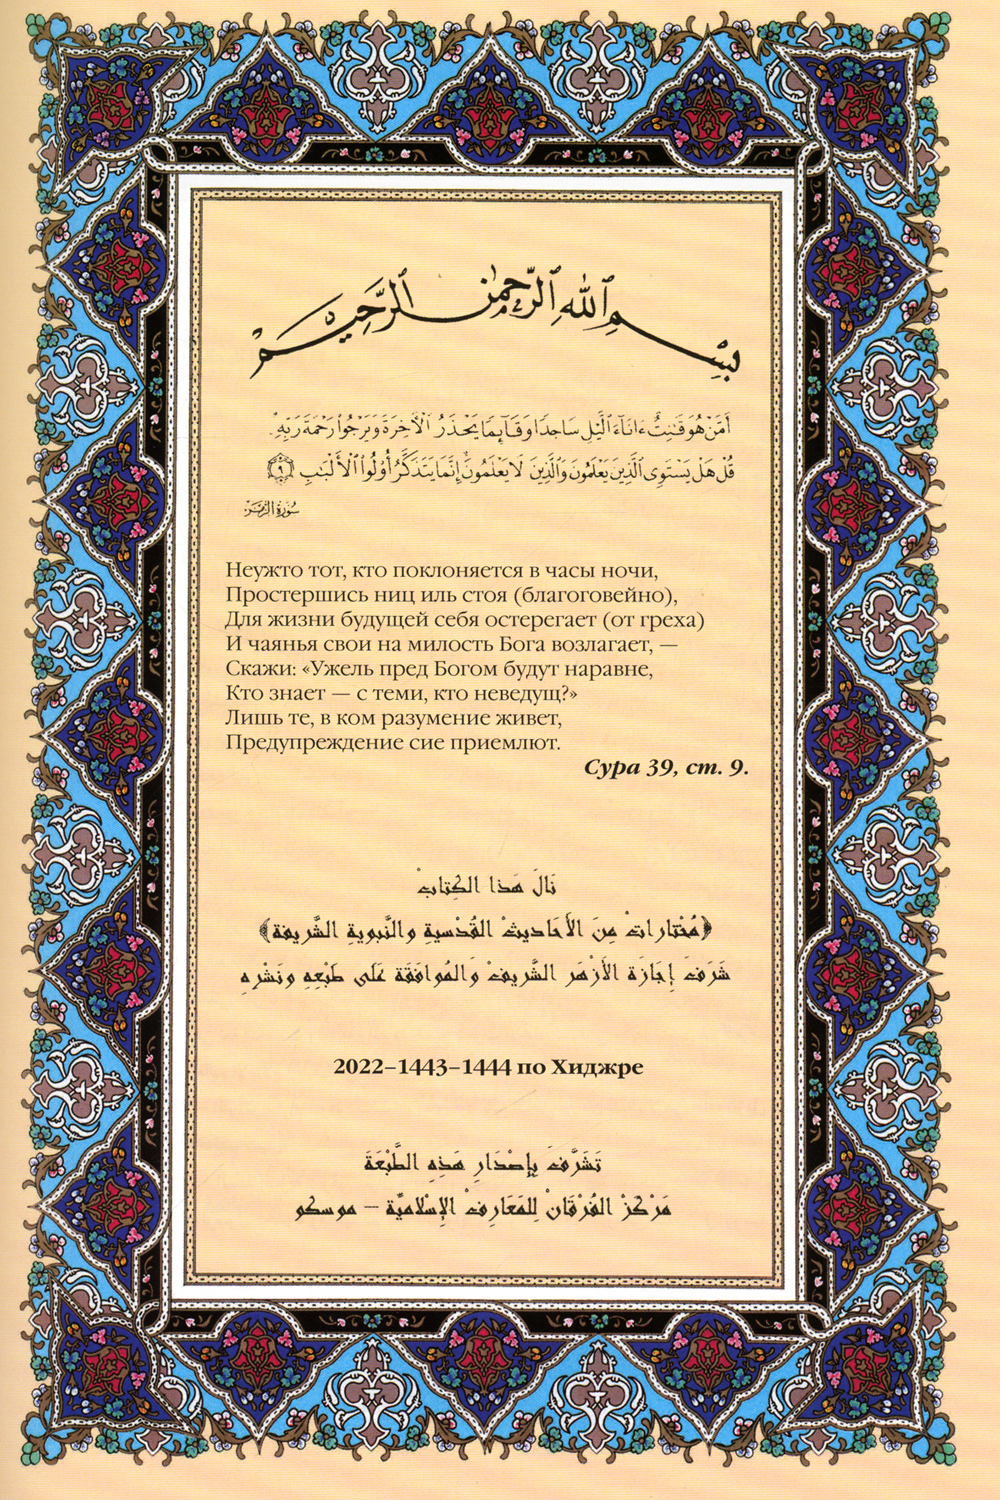 بِسْمِ ٱللَّهِ ٱلرَّحْمَٰنِ ٱلرَّحِيمِ
أَمَّنْ هُوَ قَٰنِتٌ ءَانَآءَ ٱلَّيْلِ سَاجِدًا وَقَآئِمًا يَحْذَرُ ٱلْأَخِرَةَ وَيَرْجُوا۟ رَحْمَةَ رَبِّهِۦ
قُلْ هَلْ يَسْتَوِى ٱلَّذِينَ يَعْلَمُونَ وَٱلَّذِينَ لَا يَعْلَمُونَ إِنَّمَا يَتَذَكَّرُ أُو۟لُوا۟ ٱلْأَلْبَٰبِ ۝٩
سُورَةُ الزُّمَرِ
Неужто тот, кто поклоняется в часы ночи,
Простершись ниц иль стоя (благоговейно),
Для жизни будущей себя остерегает (от греха)
И чаянья свои на милость Бога возлагает, —
Скажи: «Ужель пред Богом будут наравне,
Кто знает — с теми, кто неведущ?»
Лишь те, в ком разумение живет,
Предупреждение сие приемлют.
Сура 39, ст. 9.
نَالَ هَذا الكِتابْ
﴿مُخْتارَاتْ مِنَ الأَحَاديثْ القُدْسيةِ والنَّبويةِ الشَّريفة﴾
شَرَفَ إِجَازَة الأَزْهَر الشَّريفْ وَالمُوافَقَة عَلى طَبْعِهِ ونَشْرِهِ
2022–1443–1444 по Хиджре
تَشَرَّفَ بِإصْدَارِ هَذِهِ الطَّبْعَةَ
مَرْكَزْ الفُرْقَانْ لِلمَعَارِفْ الإسْلاميَّة – موسكو